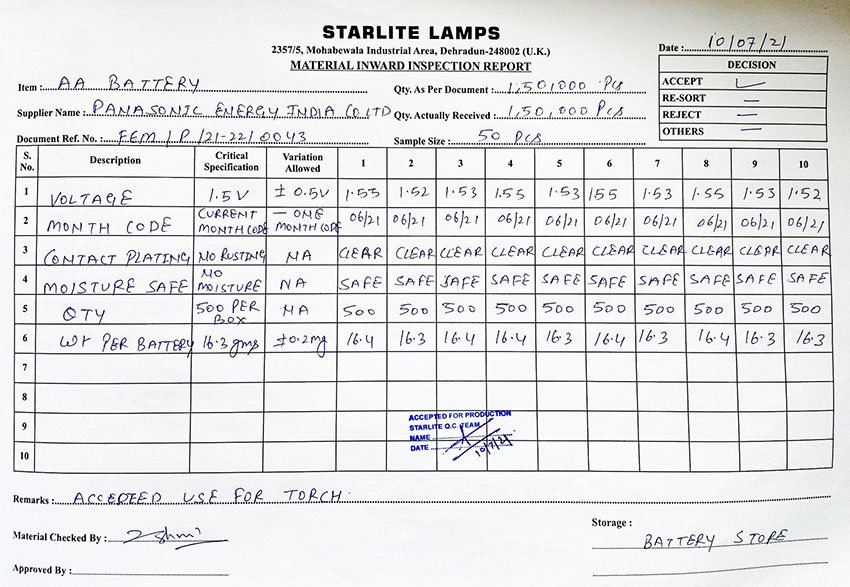 STARLITE LAMPS
2357/5, Mohabewala Industrial Area, Dehradun-248002 (U.K.)
MATERIAL INWARD INSPECTION REPORT
Date : 10/07/21
DECISION
ACCEPT ✓
RE-SORT —
REJECT —
OTHERS —
Item : AA BATTERY
Qty. As Per Document : 1,50,000 Pcs
Supplier Name : PANASONIC ENERGY INDIA CO LTD
Qty. Actually Received : 1,50,000 Pcs
Document Ref. No. : FEM/P/21-22/0043
Sample Size : 50 Pcs
S. No. Description Critical Specification Variation Allowed 1 2 3 4 5 6 7 8 9 10
1 VOLTAGE 1.5V ± 0.5V 1.55 1.52 1.53 1.55 1.53 155 1.53 1.55 1.53 1.52
2 MONTH CODE CURRENT MONTH CODE — ONE MONTH CODE 06/21 06/21 06/21 06/21 06/21 06/21 06/21 06/21 06/21 06/21
3 CONTACT PLATING NO RUSTING NA CLEAR CLEAR CLEAR CLEAR CLEAR CLEAR CLEAR CLEAR CLEAR CLEAR
4 MOISTURE SAFE NO MOISTURE NA SAFE SAFE SAFE SAFE SAFE SAFE SAFE SAFE SAFE SAFE
5 QTY 500 PER BOX NA 500 500 500 500 500 500 500 500 500 500
6 WT PER BATTERY 16.3 gms ±0.2mg 16.4 16.3 16.4 16.4 16.3 16.4 16.3 16.4 16.3 16.3
7
8
9
10
ACCEPTED FOR PRODUCTION
STARLITE Q.C. TEAM
NAME
DATE 10/7/21
Remarks : ACCEPTED USE FOR TORCH
Material Checked By :
Storage :
BATTERY STORE
Approved By :